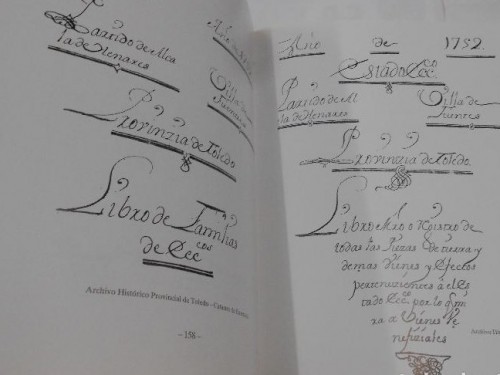 Partido de Alca
la de Henares
Año
Villa de
Fuentes
Provinzia de Toledo
Libro de Familias
de Ecc cos
Archivo Histórico Provincial de Toledo - Catastro de
- 158 -
Año de 1752.
Estado Ecco.
Partido de Al
la de Henares
Villa de
Fuentes
Provinzia de Toledo.
Libro Mro o Rejistro de
todas las Piezas de tierra y
demas vienes y efectos
pertenezientes à el Es
tado Ecco. por lo q mi
ra a Vienes Be
nefiziales
Archivo His